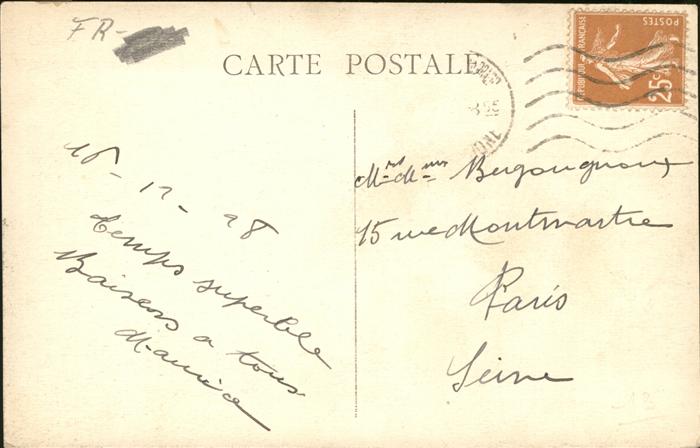 FR-
CARTE POSTALE
REPUBLIQUE FRANÇAISE
POSTES
25c
16-12-28
temps superbe
Baisers a tous
Maurice
Mr et Mme Bergougnoux
15 rue Montmartre
Paris
Seine